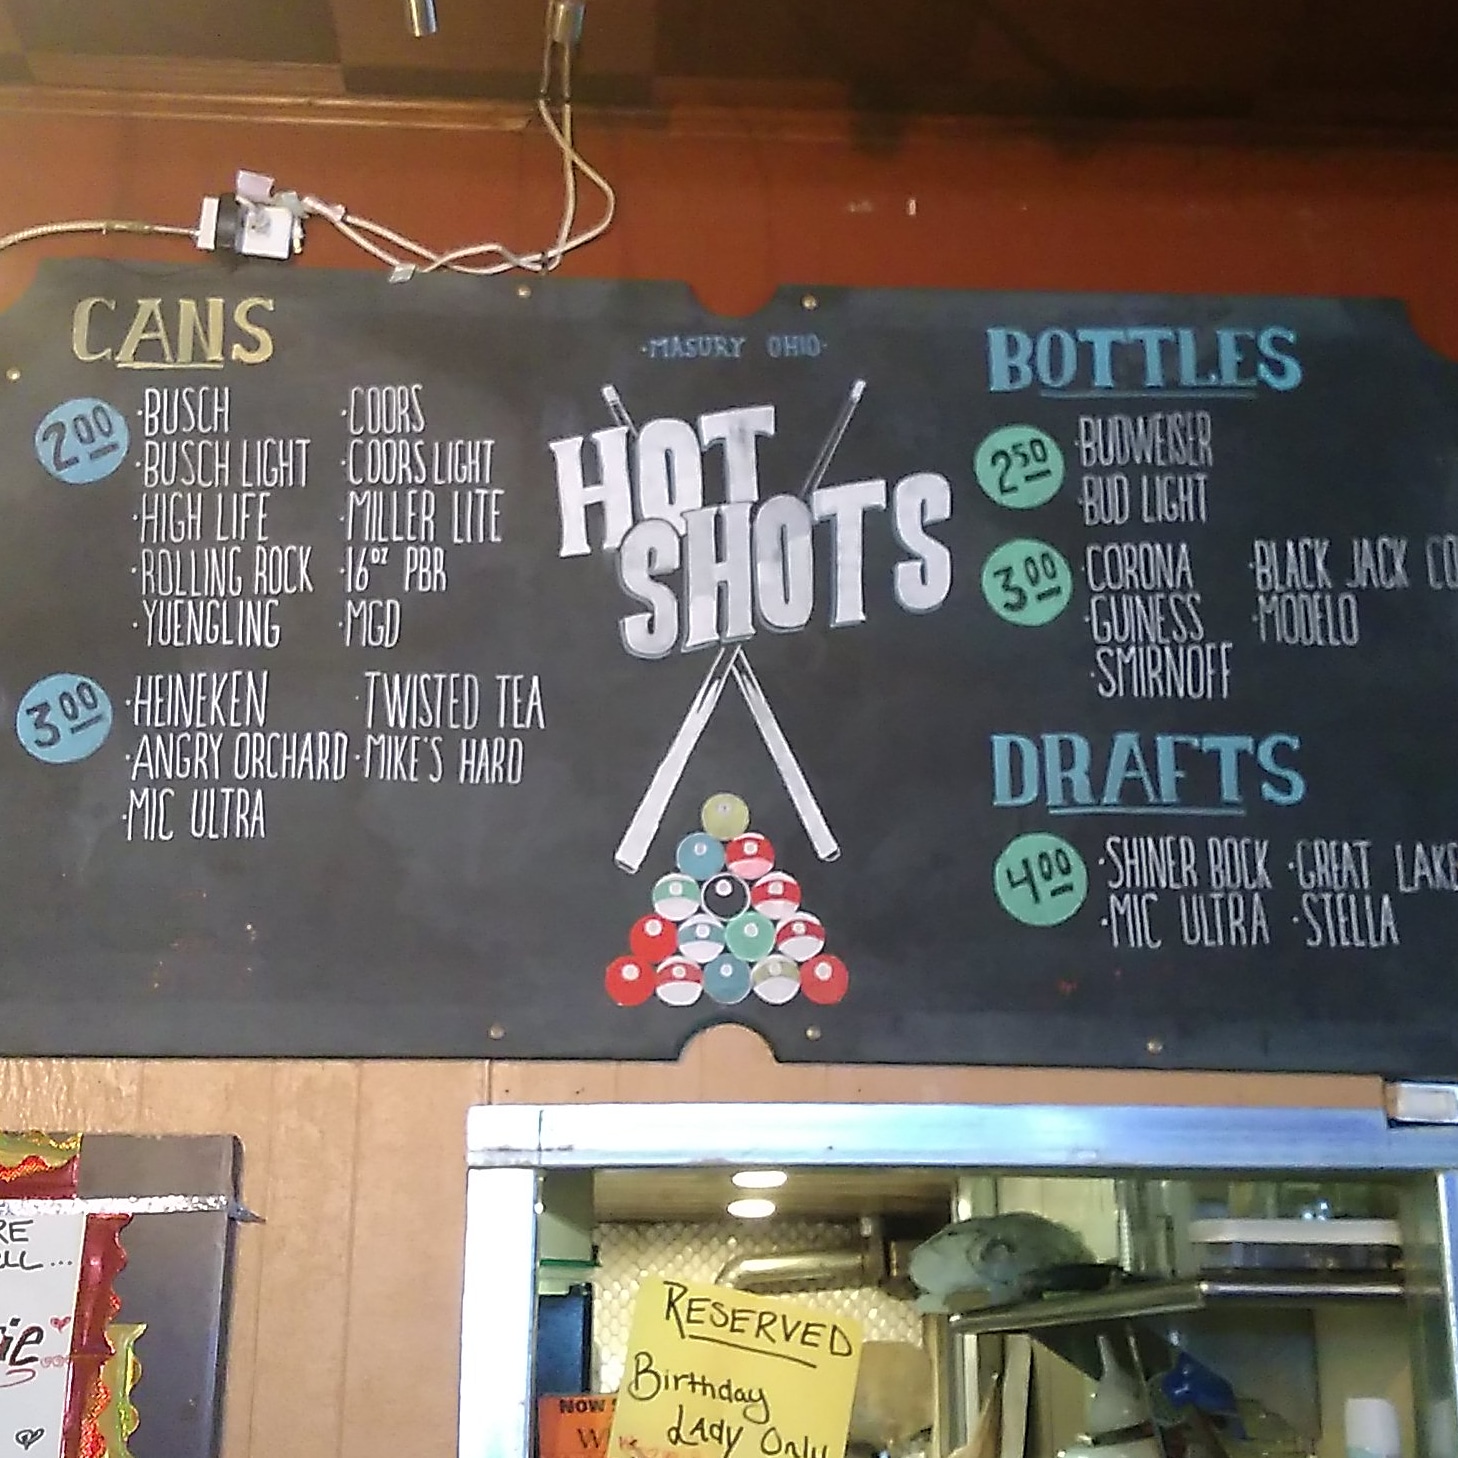 CANS
2.00
·BUSCH
·BUSCH LIGHT
·HIGH LIFE
·ROLLING ROCK
·YUENGLING
·COORS
·COORS LIGHT
·MILLER LITE
·16oz PBR
·MGD
3.00
·HEINEKEN
·ANGRY ORCHARD
·MIC ULTRA
·TWISTED TEA
·MIKE'S HARD
·MASURY OHIO·
HOT
SHOTS
BOTTLES
2.50
·BUDWEISER
·BUD LIGHT
3.00
·CORONA
·GUINESS
·SMIRNOFF
·BLACK JACK CO
·MODELO
DRAFTS
4.00
·SHINER BOCK
·MIC ULTRA
·GREAT LAKE
·STELLA
RESERVED
Birthday
LAdy Only
NOW